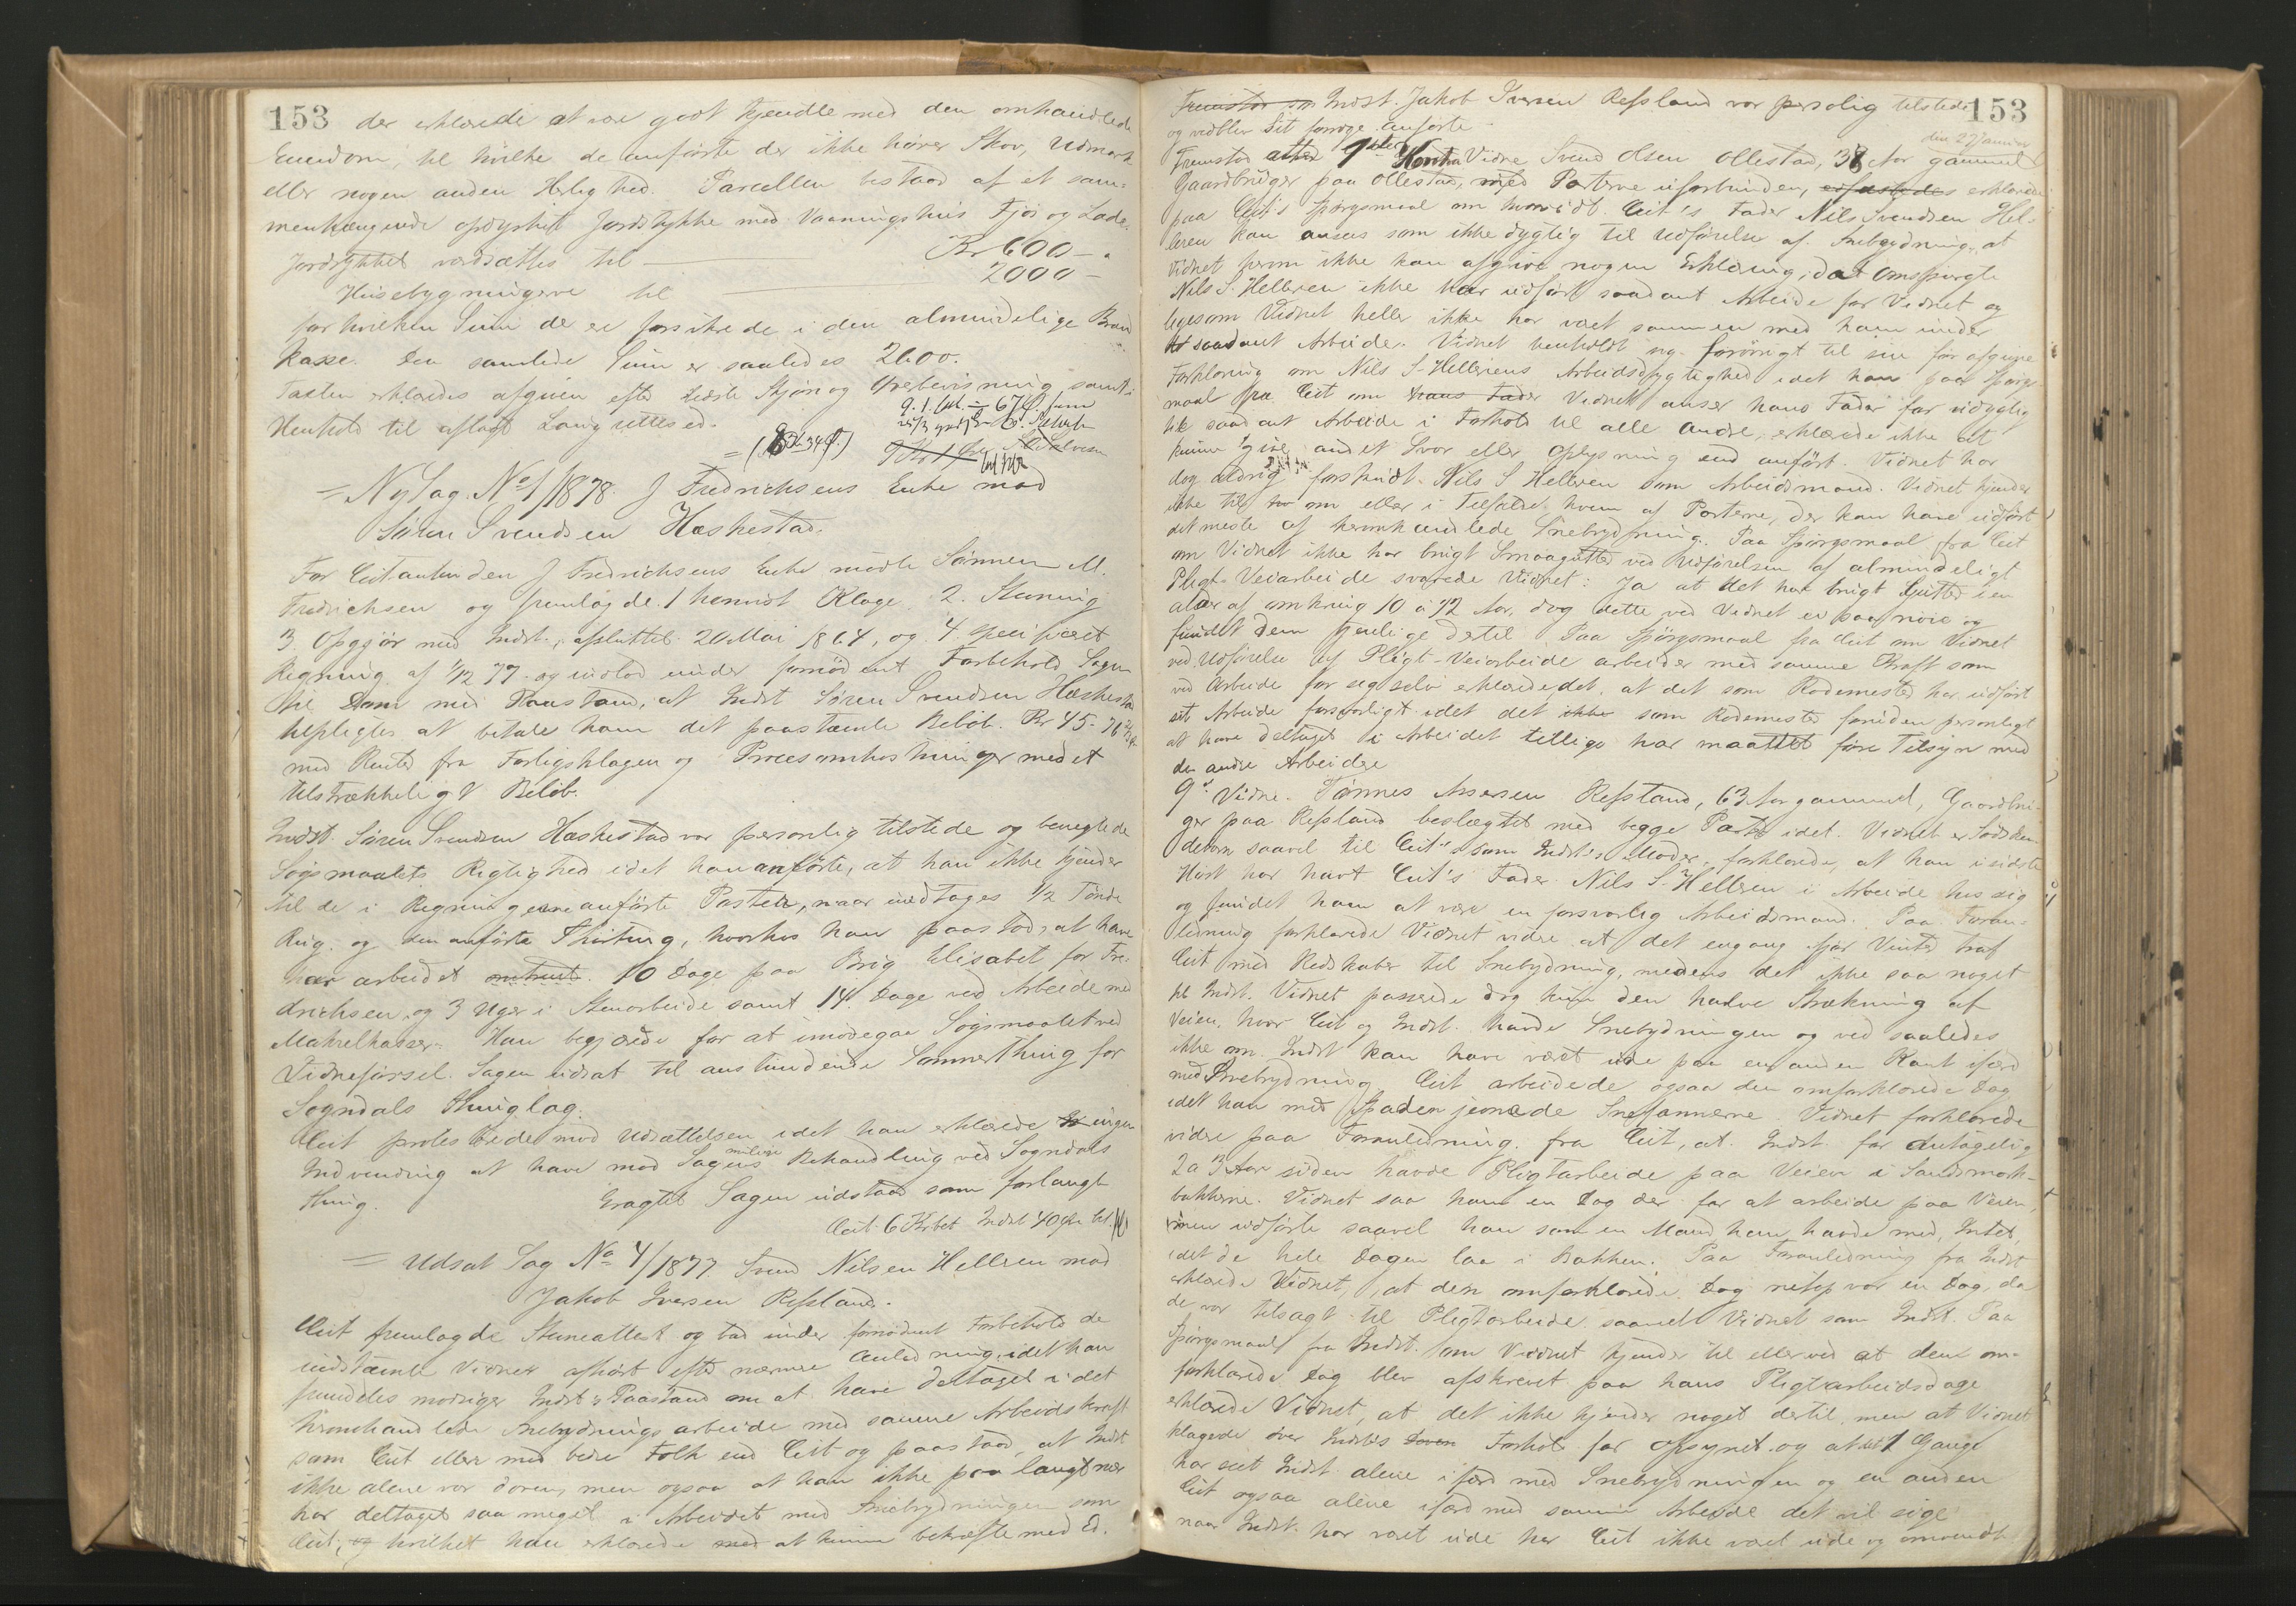 153
der erklærede at være godt kjendte med den omhandlede
Eiendom, til hvilke de anførte der ikke hører Skov, Udmark
eller nogen anden Herlighed. Parcellen bestaar af et sam-
menhængende opdyrket Jordstykke med Vaaningshus Fjøs og Lade.
Jordstykket værdsættes til — Kr 600 -
Husebygningerne til — 2000 -
for hvilken Sum de er forsikrede i den almindelige Brand
kasse. Den samlede Sum er saaledes 2600.
Taxten erklæredes afgiven efter bedste Skjøn og Overbevisning samt i
Henhold til aflagt Laugrettesed.
= Ny Sag No 1/1878. J Fredrichsens Enke mod
Søren Svendsen Hæskestad.
For Citantinden J Fredrichsens Enke mødte Sønnen M.
Fredrichsen og fremlagde 1 henvist Klage 2. Stevning
3. Opgjør med Indst., afsluttet 20 Mai 1864, og 4. specificeret
Regning af 1/12 77. og indlod under fornødent Forbehold Sagen
til Dom med Paastand, at Indst Søren Svendsen Hæskestad
tilpligtes at betale ham det paastævnte Beløb. Kr 45-76
med Renter fra Forligsklagen og Procesomkostninger med et
tilstrækkeligt Beløb.
Indst. Søren Svendsen Hæskestad var personlig tilstede og benegtede
Søgsmaalets Rigtighed idet han anførte, at han ikke kjender
til de i Regningerne anførte Poster, naar undtages 1/2 Tønde
Rug, og den anførte Skiting, hvorhos han paastod, at have
har arbeidet 10 Dage paa Brig Elisabet for Fre-
drichsen, og 3 Uger i Stenarbeide samt 14 Dage ved Arbeide med
Makrelkasser. Han begjærede for at imødegaa Søgsmaalet ved
Vidneførsel. Sagen udsat til anstundende Sommerthing for
Sogndals Thinglag.
Cit protesterede mod Udsættelsen idet han erklærede ingen
Indvending at have mod Sagens mulige Behandling ved Sogndals
Thing. Eragtet Sagen udstaar som forlangt
Cit 6 Kr bet Indst 40 Øre bet.
= Udsat Sag No 4/1877 Svend Nilsen Hellren mod
Jakob Iversen Refsland.
Cit fremlagde Stevneattest og bad under fornødent Forbehold de
indstævnte Vidner afhørt efter nærmere Anledning, idet han
fremdeles modsiger Indst's Paastand om at have deltaget i det
heromhandlede Snebrydningsarbeide med samme Arbeidskraft
som Cit eller med bedre Folk end Cit og paastaar, at Indst
ikke alene var doven, men ogsaa at han ikke paa langt nær
har deltaget saa meget i Arbeidet med Snebrydningen som
Cit, og hvilket han erklærede med at kunne bekræfte med Ed.
153
Fremstod som Indst. Jakob Iversen Refsland var personlig tilstede
og vedblev Sit forrige anførte
den 2 Januar
Fremstod atter 1ste Kontra Vidne Svend Olsen Ollestad, 38 Aar gammel
Gaardbruger paa Ollestad, med Parterne uforbunden, erklærede
paa Cit's Spørgsmaal om hvorvidt Cit's Fader Nils Svendsen Hel-
leren kan ansees som ikke dygtig til Udførelse af Snebrydning, at
Vidnet herom ikke kan afgive nogen Erklæring, da Omspurgte
Nils S. Helleren ikke har udført saadant Arbeide for Vidnet og
ligesom Vidnet heller ikke har været sammen med ham under
saadant Arbeide. Vidnet henholdt sig forøvrigt til sin før afgivne
Forklaring om Nils S. Hellerens Arbeidsdygtighed idet han paa Spørgs-
maal fra Cit om hans Fader Vidnet anser hans Fader for udygtig
til saadant Arbeide i Forhold til alle Andre, erklærede ikke at
kunne give andet Svar eller Oplysning end anført. Vidnet har
dog aldrig forsmaadt Nils S Hellren som Arbeidsmand. Vidnet kjender
ikke til om eller i Tilfælde hvem af Parterne, der kan have udført
det meste af heromhandlede Snebrydning. Paa Spørgsmaal fra Cit
om Vidnet ikke har brugt Smaagutter ved Udførelsen af almindeligt
Pligt-Veiarbeide svarede Vidnet: Ja at det har brugt Gutter i en
alder af omkring 10 à 12 Aar, dog dette ved Vidnet ei paa nøie og
fundet dem tjenlige dertil. Paa Spørgsmaal fra Cit om Vidnet
ved Udførelse af Pligt-Veiarbeide arbeider med samme Kraft som
ved Arbeide for sig selv erklærede det, at det som Rodemester har udført
sit Arbeide forsvarligt idet det ikke som Rodemester foruden personligt
at have deltaget i Arbeidet tillige har maattet føre Tilsyn med
de andre Arbeidere
9de Vidne. Tønnes Assersen Refsland, 63 Aar gammel, Gaardbru-
ger paa Refsland beslægtet med begge Parter idet Vidnet er Sødsken-
debarn saavel til Cit's som Indst's Moder, forklarede, at han i sidste
Høst har havt Cit's Fader Nils S. Hellren i Arbeide hos sig
og fundet ham at være en forsvarlig Arbeidsmand. Paa Foran-
ledning forklarede Vidnet videre at det engang ifjor Vinter traf
Cit med Redskaber til Snebrydning, medens det ikke saa noget
til Indst. Vidnet passerede dog kun den halve Strækning af
Veien, hvor Cit og Indst. havde Snebrydningen og ved saaledes
ikke om Indst kan have været ude paa en anden Kant ifærd
med Snebrydning. Cit arbeidede ogsaa den omforklarede Dag
idet han med Spaden jevnede Snefonnerne. Vidnet forklarede
videre paa Foranledning fra Cit, at Indst. for antagelig
2 à 3 Aar siden havde Pligtarbeide paa Veien i Sandsmork-
bakkerne. Vidnet saa ham en Dag der for at arbeide paa Veien,
men udførte saavel han som en Mand han havde med, Intet,
idet de hele Dagen laa i Bakken. Paa Foranledning fra Indst
erklærede Vidnet, at den omforklarede Dag netop var en Dag, da
de var tilsagt til Pligtarbeide saavel Vidnet som Indst. Paa
Spørgsmaal fra Indst. om Vidnet kjender til eller ved at den om-
forklarede Dag blev afskrevet paa hans Pligtarbeidsdage
erklærede Vidnet, at det ikke kjender noget dertil, men at Vidnet
klagede over Indst's Forhold for Opsynet og at det 1 Gange
har seet Indst alene i færd med Snebrydningen og en anden
Cit ogsaa alene ifærd med samme Arbeide det vil sige
naar Indst. har været ude har Cit ikke været ude og omvendt